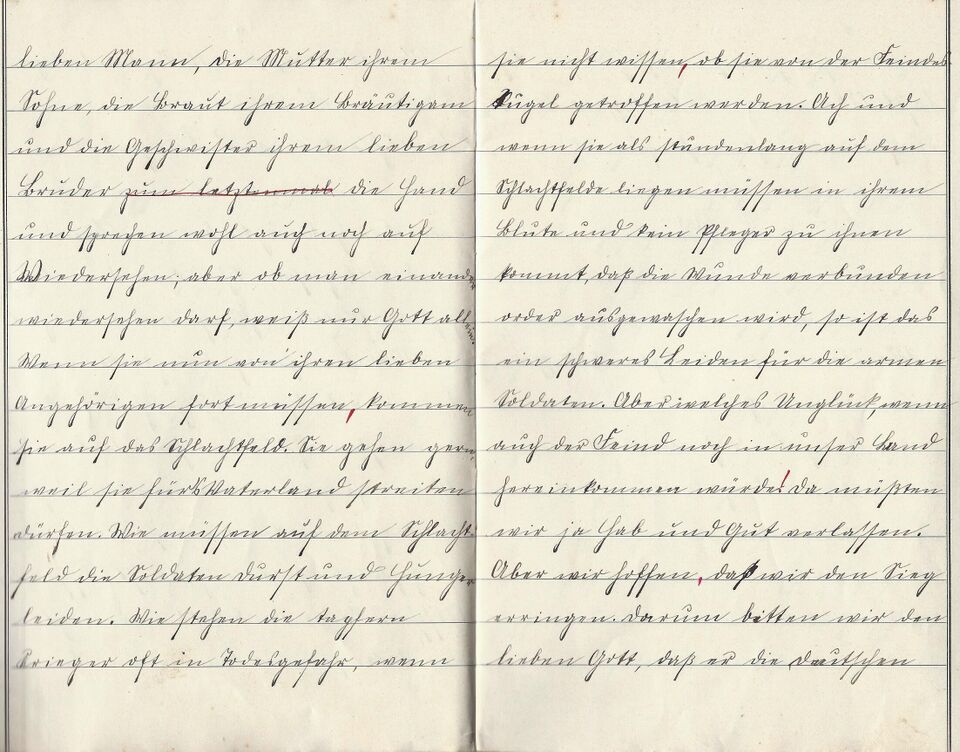 lieben Mann, die Mutter ihrem
Sohne, die Braut ihrem Bräutigam
und die Geschwister ihrem lieben
Bruder zum letztenmal die Hand
und sprechen wohl auch noch auf
Wiedersehen; aber ob man einander
wiedersehen darf, weiß nur Gott allein.
Wenn sie nun von ihren lieben
Angehörigen fort müssen, kommen
sie auf das Schlachtfeld. Sie gehen gern,
weil sie fürs Vaterland streiten
dürfen. Wie müssen auf dem Schlacht-
feld die Soldaten Durst und Hunger
leiden. Wie stehen die tapfern
Krieger oft in Todesgefahr, wenn
sie nicht wissen, ob sie von der Feindes-
kugel getroffen werden. Ach und
wenn sie als stundenlang auf dem
Schlachtfelde liegen müssen in ihrem
Blute und kein Pfleger zu ihnen
kommt, daß die Wunde verbunden
order ausgewaschen wird, so ist das
ein schweres Leiden für die armen
Soldaten. Aber welches Unglück, wenn
auch der Feind noch in unser Land
hereinkommen würde! Da müßten
wir ja Hab und Gut verlassen.
Aber wir hoffen, daß wir den Sieg
erringen. Darum bitten wir den
lieben Gott, daß er die Deutschen